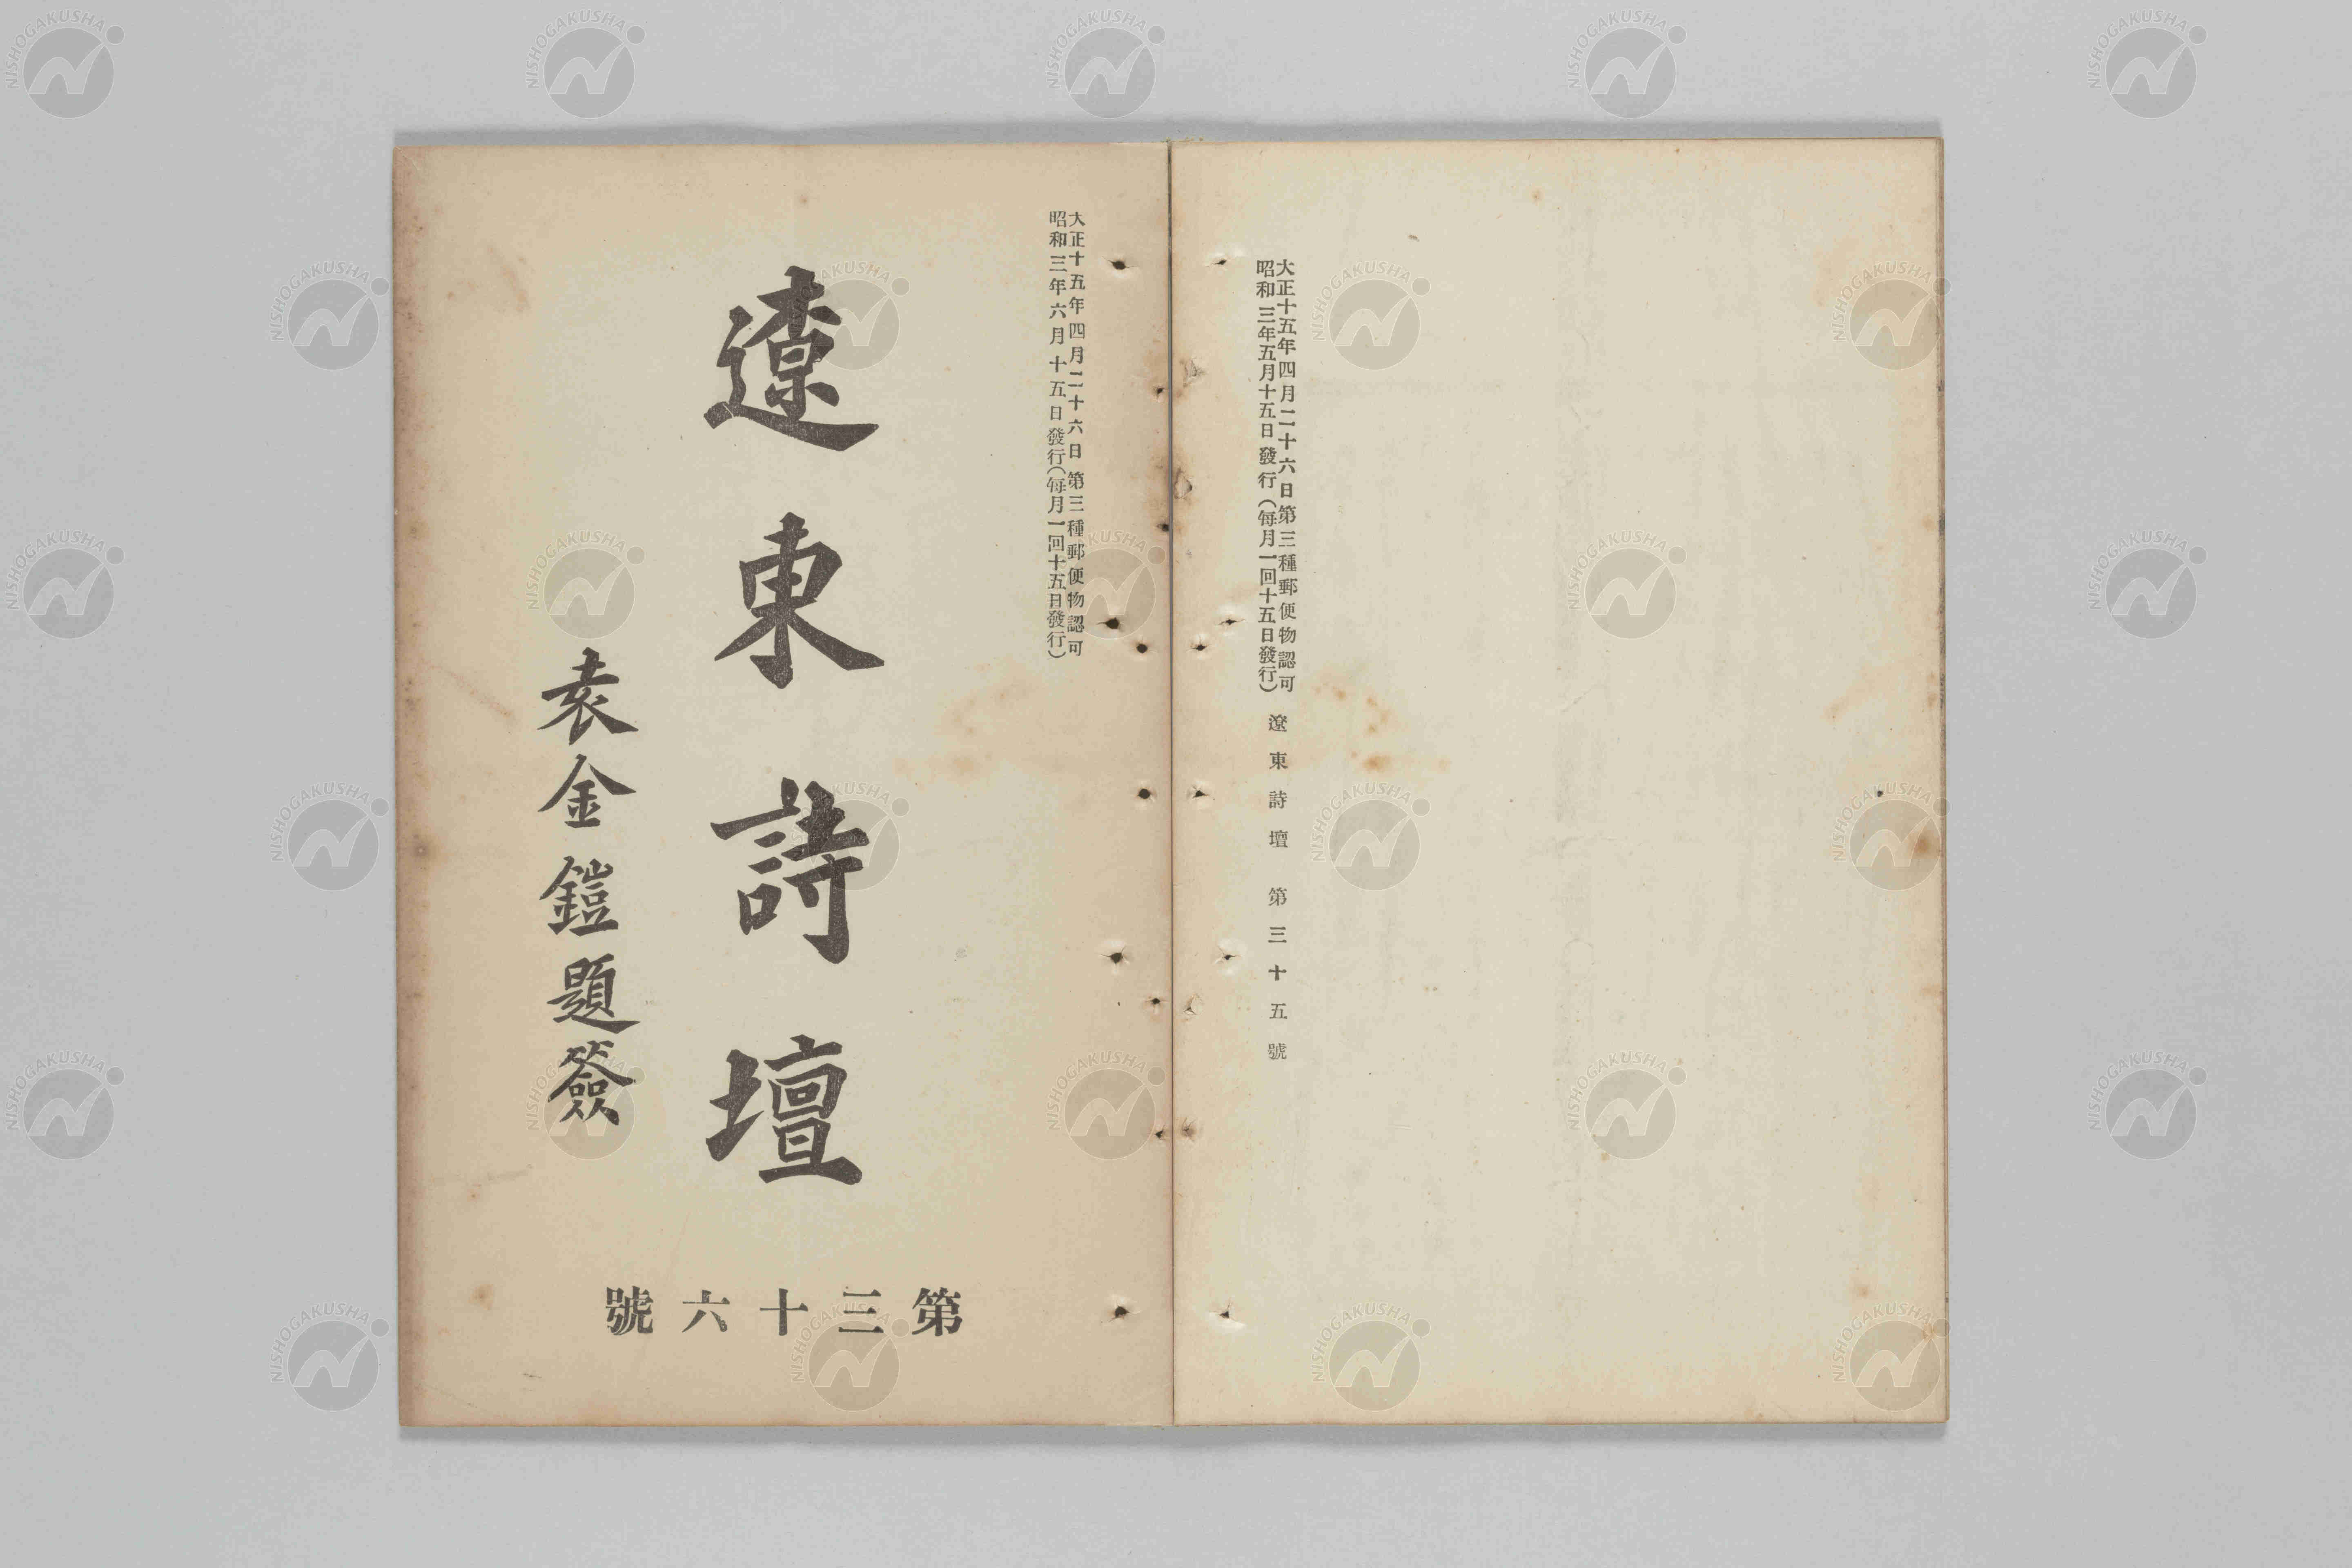 大正十五年四月二十六日第三種郵便物認可
昭和三年五月十五日發行(每月一回十五日發行)
遼東詩壇 第三十五號
大正十五年四月二十六日第三種郵便物認可
昭和三年六月十五日發行(每月一回十五日發行)
遼東詩壇
袁金鎧題簽
第三十六號
NISHOGAKUSHA